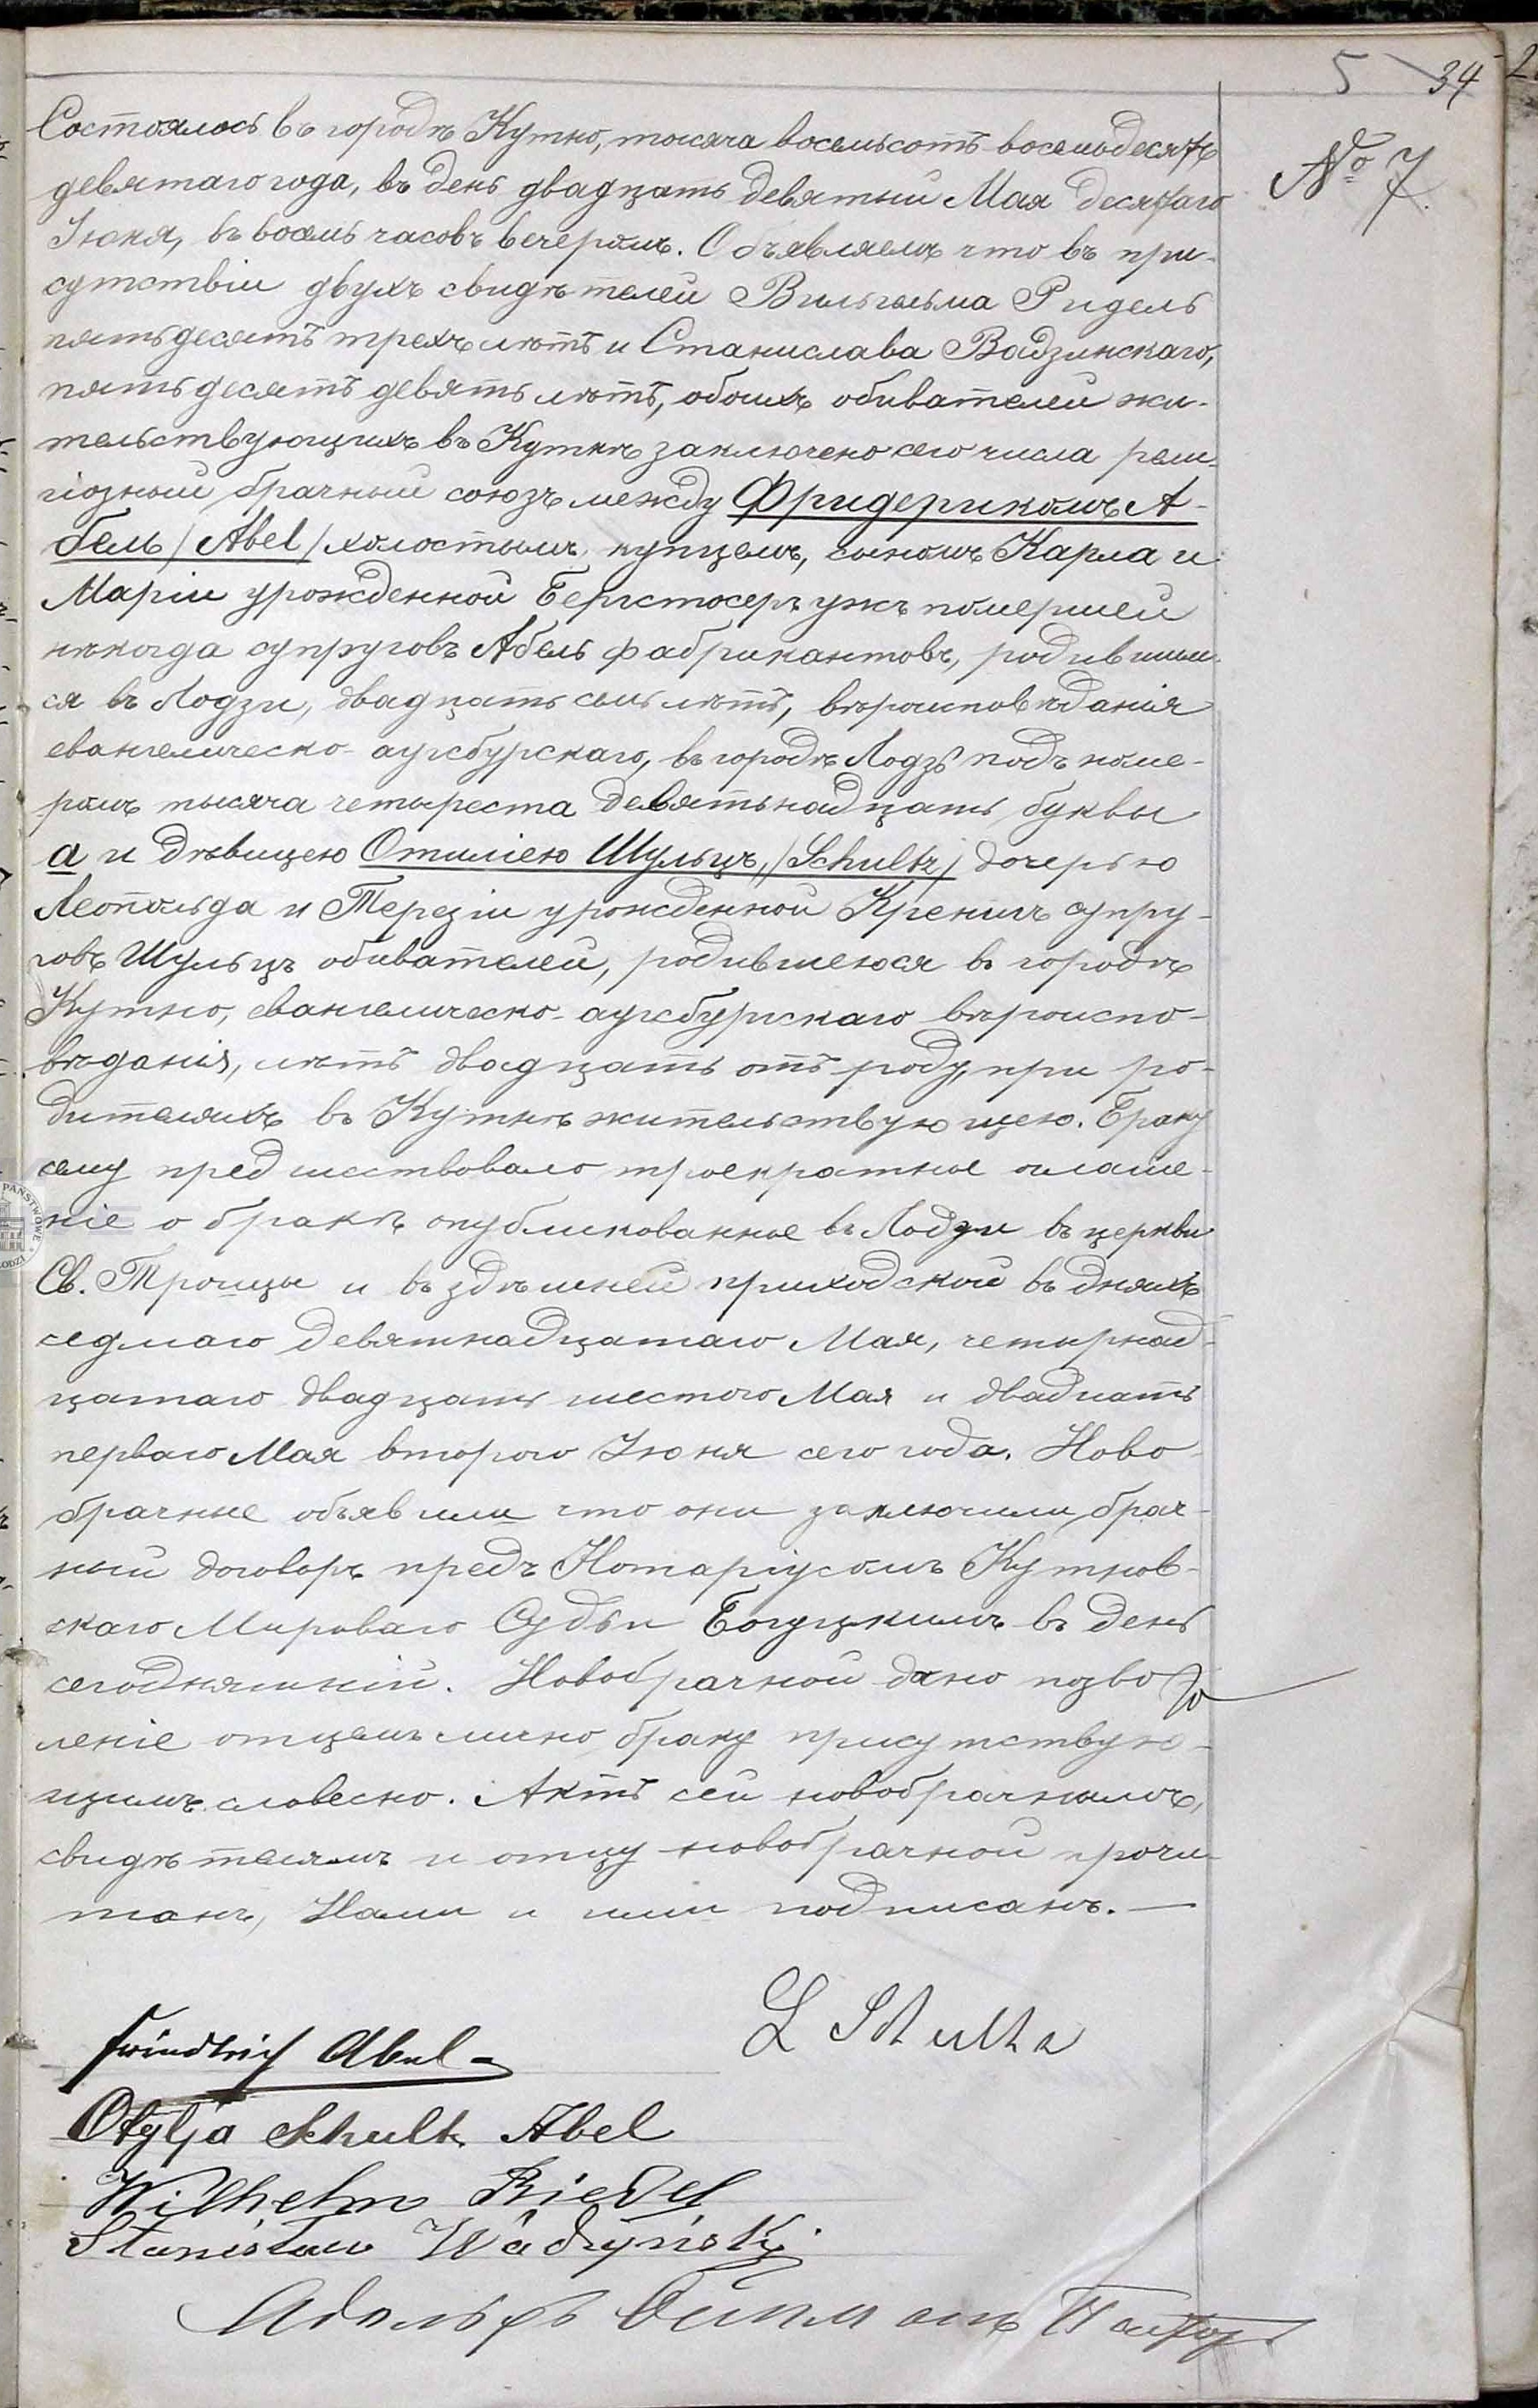 5 34
№ 7.
Состоялось въ городѣ Кутно, тысяча восемьсотъ восемьдесятъ
девятаго года, въ день двадцать девятый Мая десятаго
Іюня, въ восемь часовъ вечеромъ. Объявляемъ что въ при-
сутствіи двухъ свидѣтелей Вильгельма Ридель
пятьдесятъ трехъ лѣтъ и Станислава Вадзинскаго,
пятьдесятъ девять лѣтъ, обоихъ обивателей жи-
тельствующихъ въ Кутнѣ заключено сего числа рели-
гіозный брачный союзъ между Фридерикомъ А-
бель /Abel/ холостымъ, купцемъ, сыномъ Карла и
Маріи урожденной уже помершей
нѣкогда супруговъ Абель фабрикантовъ, родившим-
ся въ Лодзи, двадцать семь лѣтъ, вѣроисповѣданія
евангелическо-аугсбурскаго, въ городѣ Лодзѣ подъ номе-
ромъ тысяча четыреста девятьнадцать буквы
а и дѣвицею Отиліею Шульцъ, /Schultz/ дочерью
Леопольда и Терезіи урожденной супру-
говъ Шульцъ обивателей, родившеюся въ городѣ
Кутно, евангелическо-аугсбургскаго вѣроиспо-
вѣданія, лѣтъ двадцать отъ роду, при ро-
дителяхъ въ Кутнѣ жительствующею. Браку
сему предшествовало троекратное оглаше-
ніе о бракѣ опубликованное въ Лодзи въ церкви
Св. Троицы и въ здѣшней приходской въ дняхъ
седмаго девятнадцатаго Мая, четырнад-
цатаго двадцать шестого Мая и двадцать
перваго Мая второго Іюня сего года. Ново-
брачные объявили что они заключили брач-
ный договоръ предъ Нотаріусомъ Кутнов-
скаго Мироваго Судьи Богуцкимъ въ день
сегодняшній. Новобрачной дано позво-
леніе отцемъ лично браку присутствую-
щимъ словесно. Актъ сей новобрачнымъ,
свидѣтелямъ и отцу новобрачной прочи-
танъ, Нами и ими подписанъ. —
L Schultz
Friedrich Abel
Otylja Schultz Abel
Wilhelm Riedel
Stanisław Wadzyński
Адольфъ Пасторъ